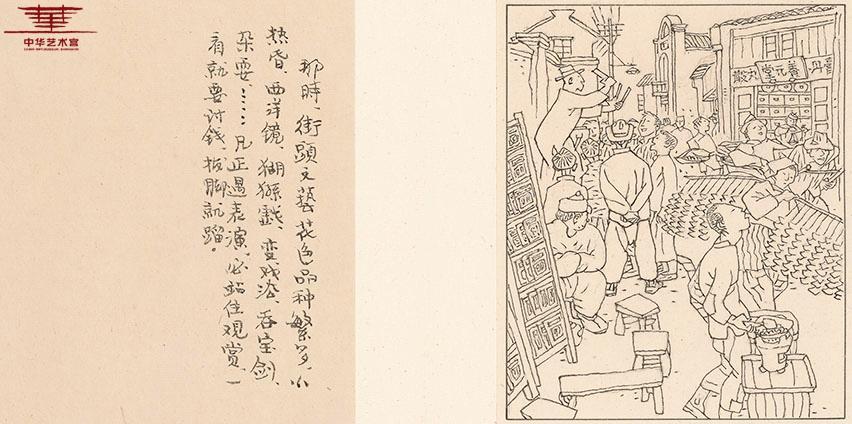 中华艺术宫
那時、街頭文藝花色品种繁多,小
热昏、西洋镜、猢狲戲、变戏法、吞宝剑、
杂耍……凡正遇表演,必站住观赏,一
看就要讨錢,拔脚就蹓。
膏丹
善元堂
丸散